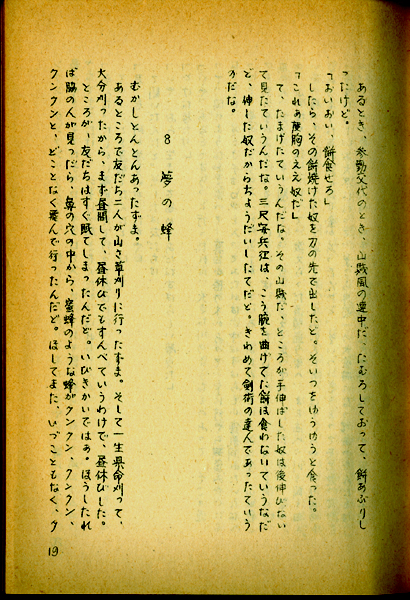 あるとき、参勤交代のとき、山賊風の連中だ、たむろしておって、餅あぶりし
ったけど。
「おいおい、餅食せろ」
したら、その餅焼けた奴を刀の先で出したど。そいつをゆうゆうと食った。
「これぁ度胸のええ奴だ」
て、たまげたていうんだな。その山賊だ、ところが手伸ばした奴は後伸びない
て見たていうんだな。三尺安兵江は、こう腕を曲げでた餅は食わないていうなだ
ど、伸した奴だからちょうだいしたてだど。きわめて剣術の達人であったていう
のだな。
8 夢の蜂
むかしとんとんあったずま。
あるところで友だち二人が山さ草刈りに行ったずま。そして一生懸命刈って、
大分刈ったから、まず昼間して、昼休びでもすんべていうわけで、昼休びした。
ところが、友だちはすぐ眠てしまったんだど。いびきかいではぁ。ほうしたれ
ば脇の人が見ったら、鼻の穴の中から、蜜蜂のような蜂がクンクン、クンクン、
クンクンと、どことなく飛んで行ったんだど。ほしてまた、いづこともなく、ク
19